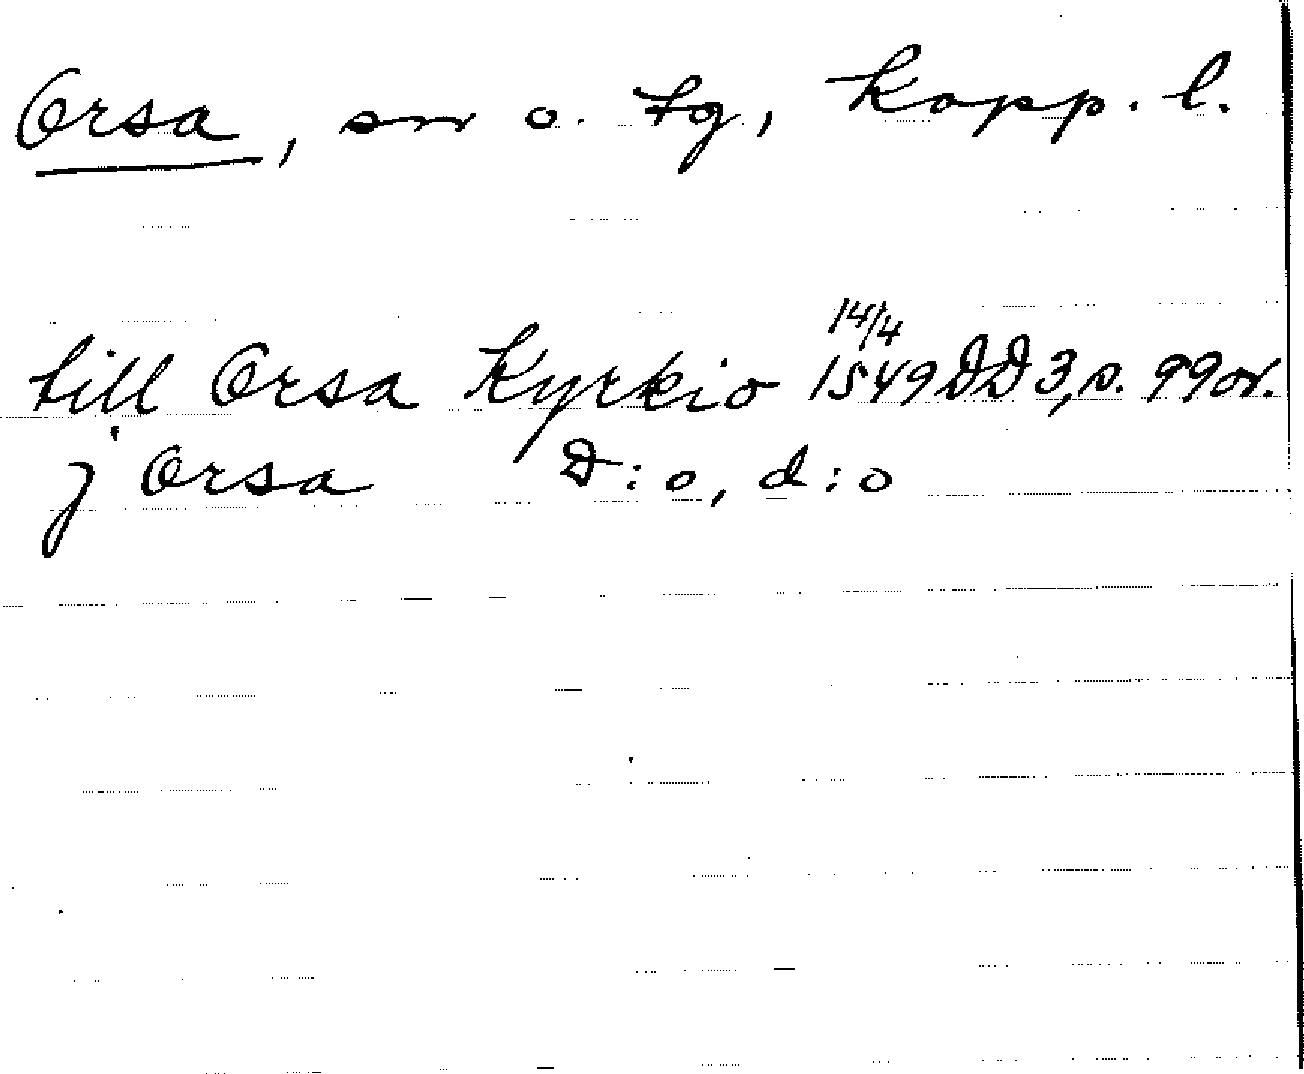 Orsa, sn o. tg, Kopp. l.
till Orsa Kyrkio 14/4 1549 DD 3, s. 99 or.
j Orsa D:o, d:o